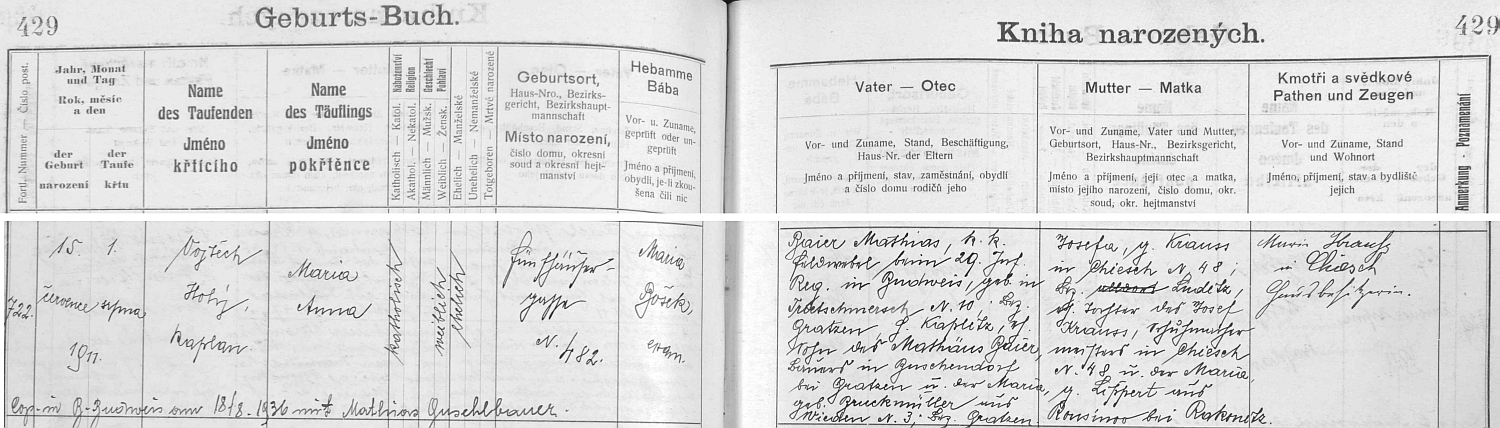 429
Geburts-Buch.
Fortl. Nummer — Číslo post.
Jahr, Monat
und Tag
Rok, měsíc
a den
der
Geburt
narození
der
Taufe
křtu
Name
des Taufenden
Jméno
křtícího
Name
des Täuflings
Jméno
pokřtěnce
Katholisch — Katol.
Akathol. — Nekatol.
Náboženství
Religion
Männlich — Mužsk.
Weiblich — Žensk.
Geschlecht
Pohlaví
Ehelich — Manželské
Unehelich — Nemanželské
Totgeboren — Mrtvě narozené
Geburtsort,
Haus-Nro., Bezirks-
gericht, Bezirkshaupt-
mannschaft
Místo narození,
číslo domu, okresní
soud a okresní hejt-
manství
Hebamme
Bába
Vor- u. Zuname,
geprüft oder un-
geprüft
Jméno a příjmení,
obydlí, je-li zkou-
šena čili nic
722.
15.
července
1911.
1.
srpna
Vojtěch
Holý,
Kaplan
Maria
Anna
katholisch
weiblich
ehelich
Fünfhäuser-
gasse
N. 482.
Maria
Bošek,
exam.
Cop. in B-Budweis am 18/8. 1936 mit Mathias Guschlbauer.
429
Kniha narozených.
Vater — Otec
Vor- und Zuname, Stand, Beschäftigung,
Haus-Nr. der Eltern
Jméno a příjmení, stav, zaměstnání, obydlí
a číslo domu rodičů jeho
Mutter — Matka
Vor- und Zuname, Vater und Mutter,
Geburtsort, Haus-Nr., Bezirksgericht,
Bezirkshauptmannschaft
Jméno a příjmení, její otec a matka,
místo jejího narození, číslo domu, okr.
soud, okr. hejtmanství
Kmotři a svědkové
Pathen und Zeugen
Vor- und Zuname, Stand
und Wohnort
Jméno, příjmení, stav a bydliště
jejich
Anmerkung - Poznamenání
Baier Mathias, k. k.
Feldwebel beim 29. Inf.
Reg. in Budweis, geb. in
Tratschmersch N. 10, Bez.
Gratzen, H. Kaplitz, eh.
Sohn des Mathäus Baier,
Bauers in Guschendorf
bei Gratzen u. der Maria,
geb. Bruckmüller aus
Wieden N. 3; Bez. Gratzen.
Josefa, g. Krauss
in Chiesch N. 48;
Bez. Luditz,
eh. Tochter des Josef
Krauss, Schuhmacher
meisters in Chiesch
N. 48 u. der Maria,
g. Lippert aus
bei Rakonitz.
Marie
in Chiesch
Hausbesitzerin.